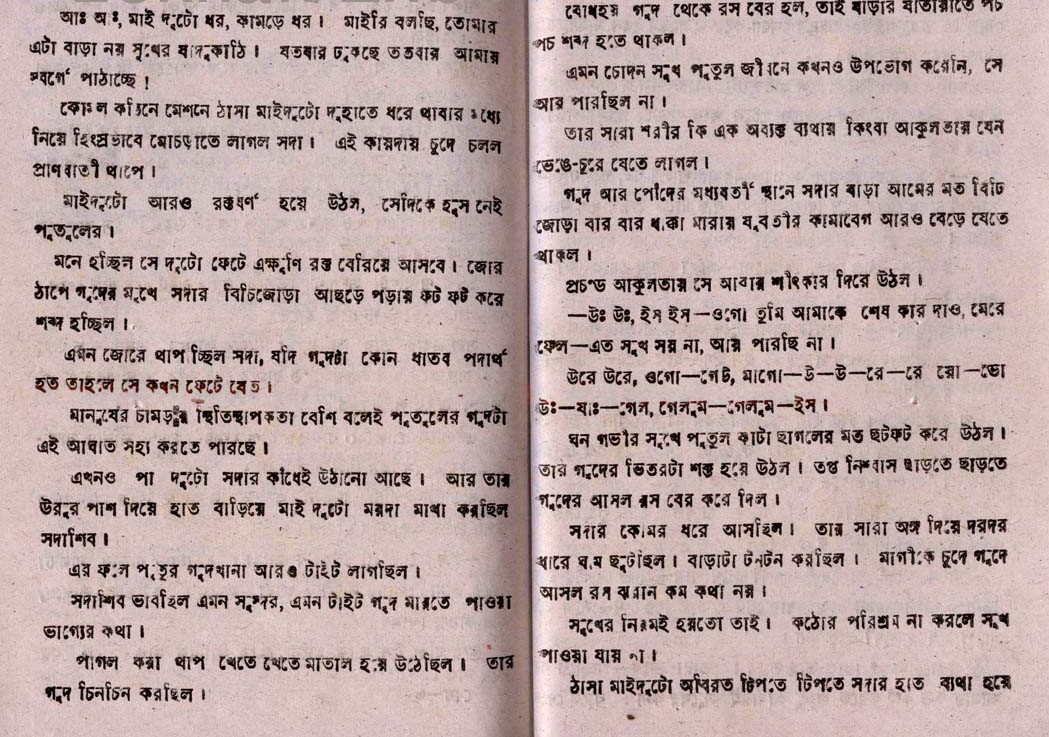 আঃ অঃ, মাই দুটো ধর, কামড়ে ধর। মাইরি বলছি, তোমার
এটা বাড়া নয় সুখের যাদুকাঠি। যতবার ঢুকছে ততবার আমায়
স্বর্গে পাঠাচ্ছে!
মেশনে ঠাসা মাইদুটো দুহাতে ধরে থাবার মধ্যে
নিয়ে হিংস্রভাবে মোচড়াতে লাগল সদা। এই কায়দায় চুদে চলল
প্রাণঘাতী থাপে।
মাইদুটো আরও রক্তবর্ণ হয়ে উঠল, সেদিকে হুস নেই
পুতুলের।
মনে হচ্ছিল সে দুটো ফেটে এক্ষুণি রক্ত বেরিয়ে আসবে। জোর
ঠাপে গুদের মুখে সদার বিচিজোড়া আছড়ে পড়ায় ফট ফট করে
শব্দ হচ্ছিল।
এমন জোরে থাপ দিচ্ছিল সদা, যদি গুদটা কোন ধাতব পদার্থ
হত তাহলে সে কখন ফেটে যেত।
মানুষের চামড়ার স্থিতিস্থাপকতা বেশি বলেই পুতুলের গুদটা
এই আঘাত সহ্য করতে পারছে।
এখনও পা দুটো সদার কাঁধেই উঠানো আছে। আর তার
উরুর পাশ দিয়ে হাত বাড়িয়ে মাই দুটো ময়দা মাখা করছিল
সদাশিব।
এর ফলে পুতুর গুদখানা আরও টাইট লাগছিল।
সদাশিব ভাবছিল এমন সুন্দর, এমন টাইট গুদ মারতে পাওয়া
ভাগ্যের কথা।
পাগল করা থাপ খেতে খেতে মাতাল হয়ে উঠেছিল। তার
গুদ চিনচিন করছিল।
বোধহয় গুদ থেকে রস বের হল, তাই বাড়ার যাতায়াতে পচ
পচ শব্দ হতে থাকল।
এমন চোদন সুখ পুতুল জীবনে কখনও উপভোগ করেনি, সে
আর পারছিল না।
তার সারা শরীর কি এক অব্যক্ত ব্যথায় কিংবা আকুলতায় যেন
ভেঙে-চুরে যেতে লাগল।
গুদ আর পোঁদের মধ্যবর্তী স্থানে সদার বাড়া আমের মত বিচি
জোড়া বার বার ধাক্কা মারায় যুবতীর কামাবেগ আরও বেড়ে যেতে
থাকল।
প্রচন্ড আকুলতায় সে আবার শীৎকার দিয়ে উঠল।
—উঃ উঃ, ইস ইস—ওগো তুমি আমাকে শেষ কার দাও, মেরে
ফেল—এত সুখ সয় না, আর পারছি না।
উরে উরে, ওগো—গেউ, মাগো—উ—উ—রে—রে য়ো—ভো
উঃ—যাঃ—গেল, গেলুম—গেলুম—ইস।
ঘন গভীর সুখে পুতুল কাটা ছাগলের মত ছটফট করে উঠল।
তার গুদের ভিতরটা শক্ত হয়ে উঠল। তপ্ত নিশ্বাস ছাড়তে ছাড়তে
গুদের আসল রস বের করে দিল।
সদার কোমর ধরে আসছিল। তার সারা অঙ্গ দিয়ে দরদর
ধারে ঘাম ছুটছিল। বাড়াটা টনটন করছিল। মাগীকে চুদে গুদে
আসল রস ঝরান কম কথা নয়।
সুখের নিয়মই হয়তো তাই। কঠোর পরিশ্রম না করলে সুখ
পাওয়া যায় না।
ঠাসা মাইদুটো অবিরত টিপতে টিপতে সদার হাত ব্যথা হয়ে